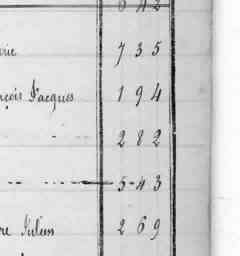 642
rie 735
nçois Jacques 194
282
543
re Julien 269